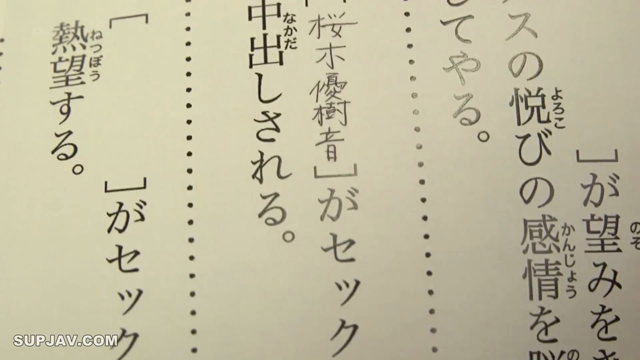 ]が望みを
スの悦びの感情を
してやる。
[桜木優樹音]がセック
中出しされる。
[ ]がセック
熱望する。
SUPJAV.COM